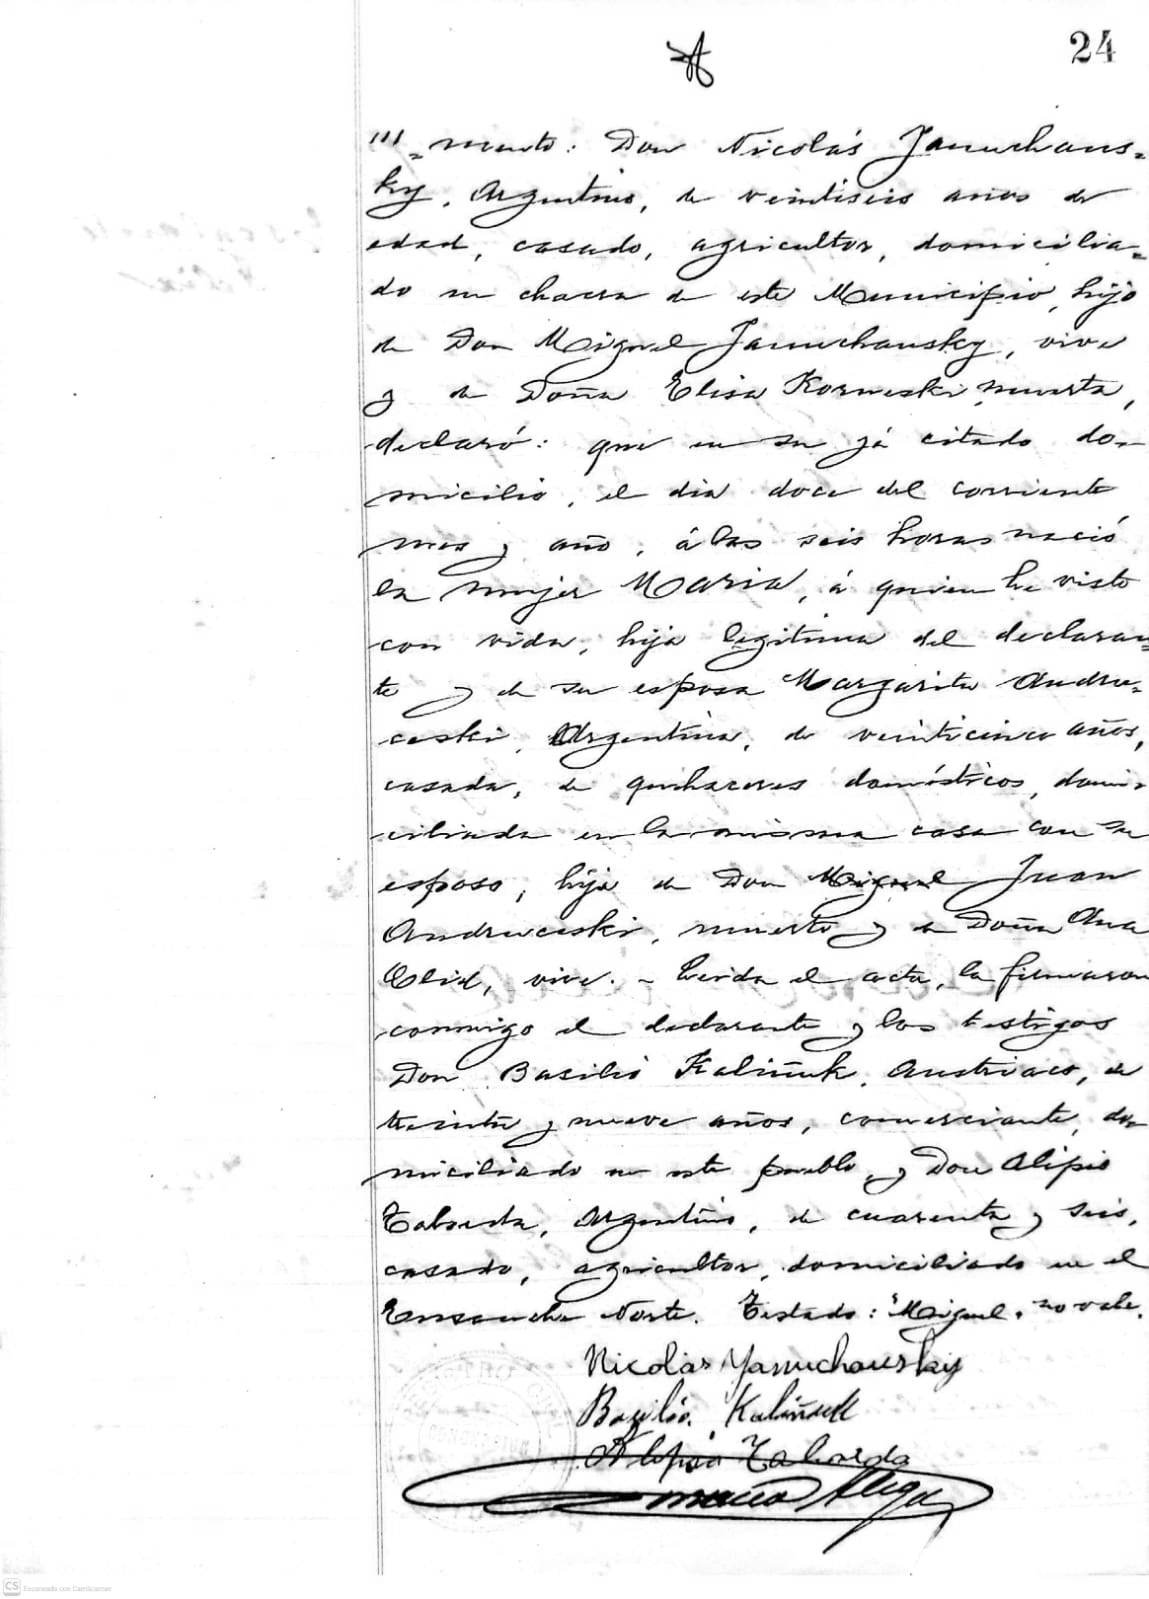 24
"'= mento: Don Nicolás Januchans=
ky, Argentino, de veintiseis años de
edad, casado, agricultor, domicilia=
do en chacra de este Municipio, hijo
de Don Miguel Januchansky, vive
y de Doña Elisa Korneski, muerta,
declaró: que en su já citado do-
micilio, el dia doce del corriente
mes y año, á las seis horas nació
la mujer Maria, á quien he visto
con vida, hija legitima del declaran=
te y de su esposa Margarita Andru=
ceski, Argentina, de veinticinco años,
casada, de quehaceres domésticos, domi-
ciliada en la misma casa con su
esposo, hija de Don Miguel Juan
Andruceski, muerto y de Doña Ana
vive. - Leida el acta, la firmaron
conmigo el declarante y los testigos
Don Basilio Kaliñuk, Austriaco, de
treinta y nueve años, comerciante, do-
miciliado en este pueblo, y Don Alipio
Taborda, Argentino, de cuarenta y seis,
casado, agricultor, domiciliado en el
Ensanche Norte. Testado: "Miguel" no vale.
Nicolas Yanuchausky
Bazilio. Kaliñuk
Alipio Taborda
CS Escaneado con CamScanner